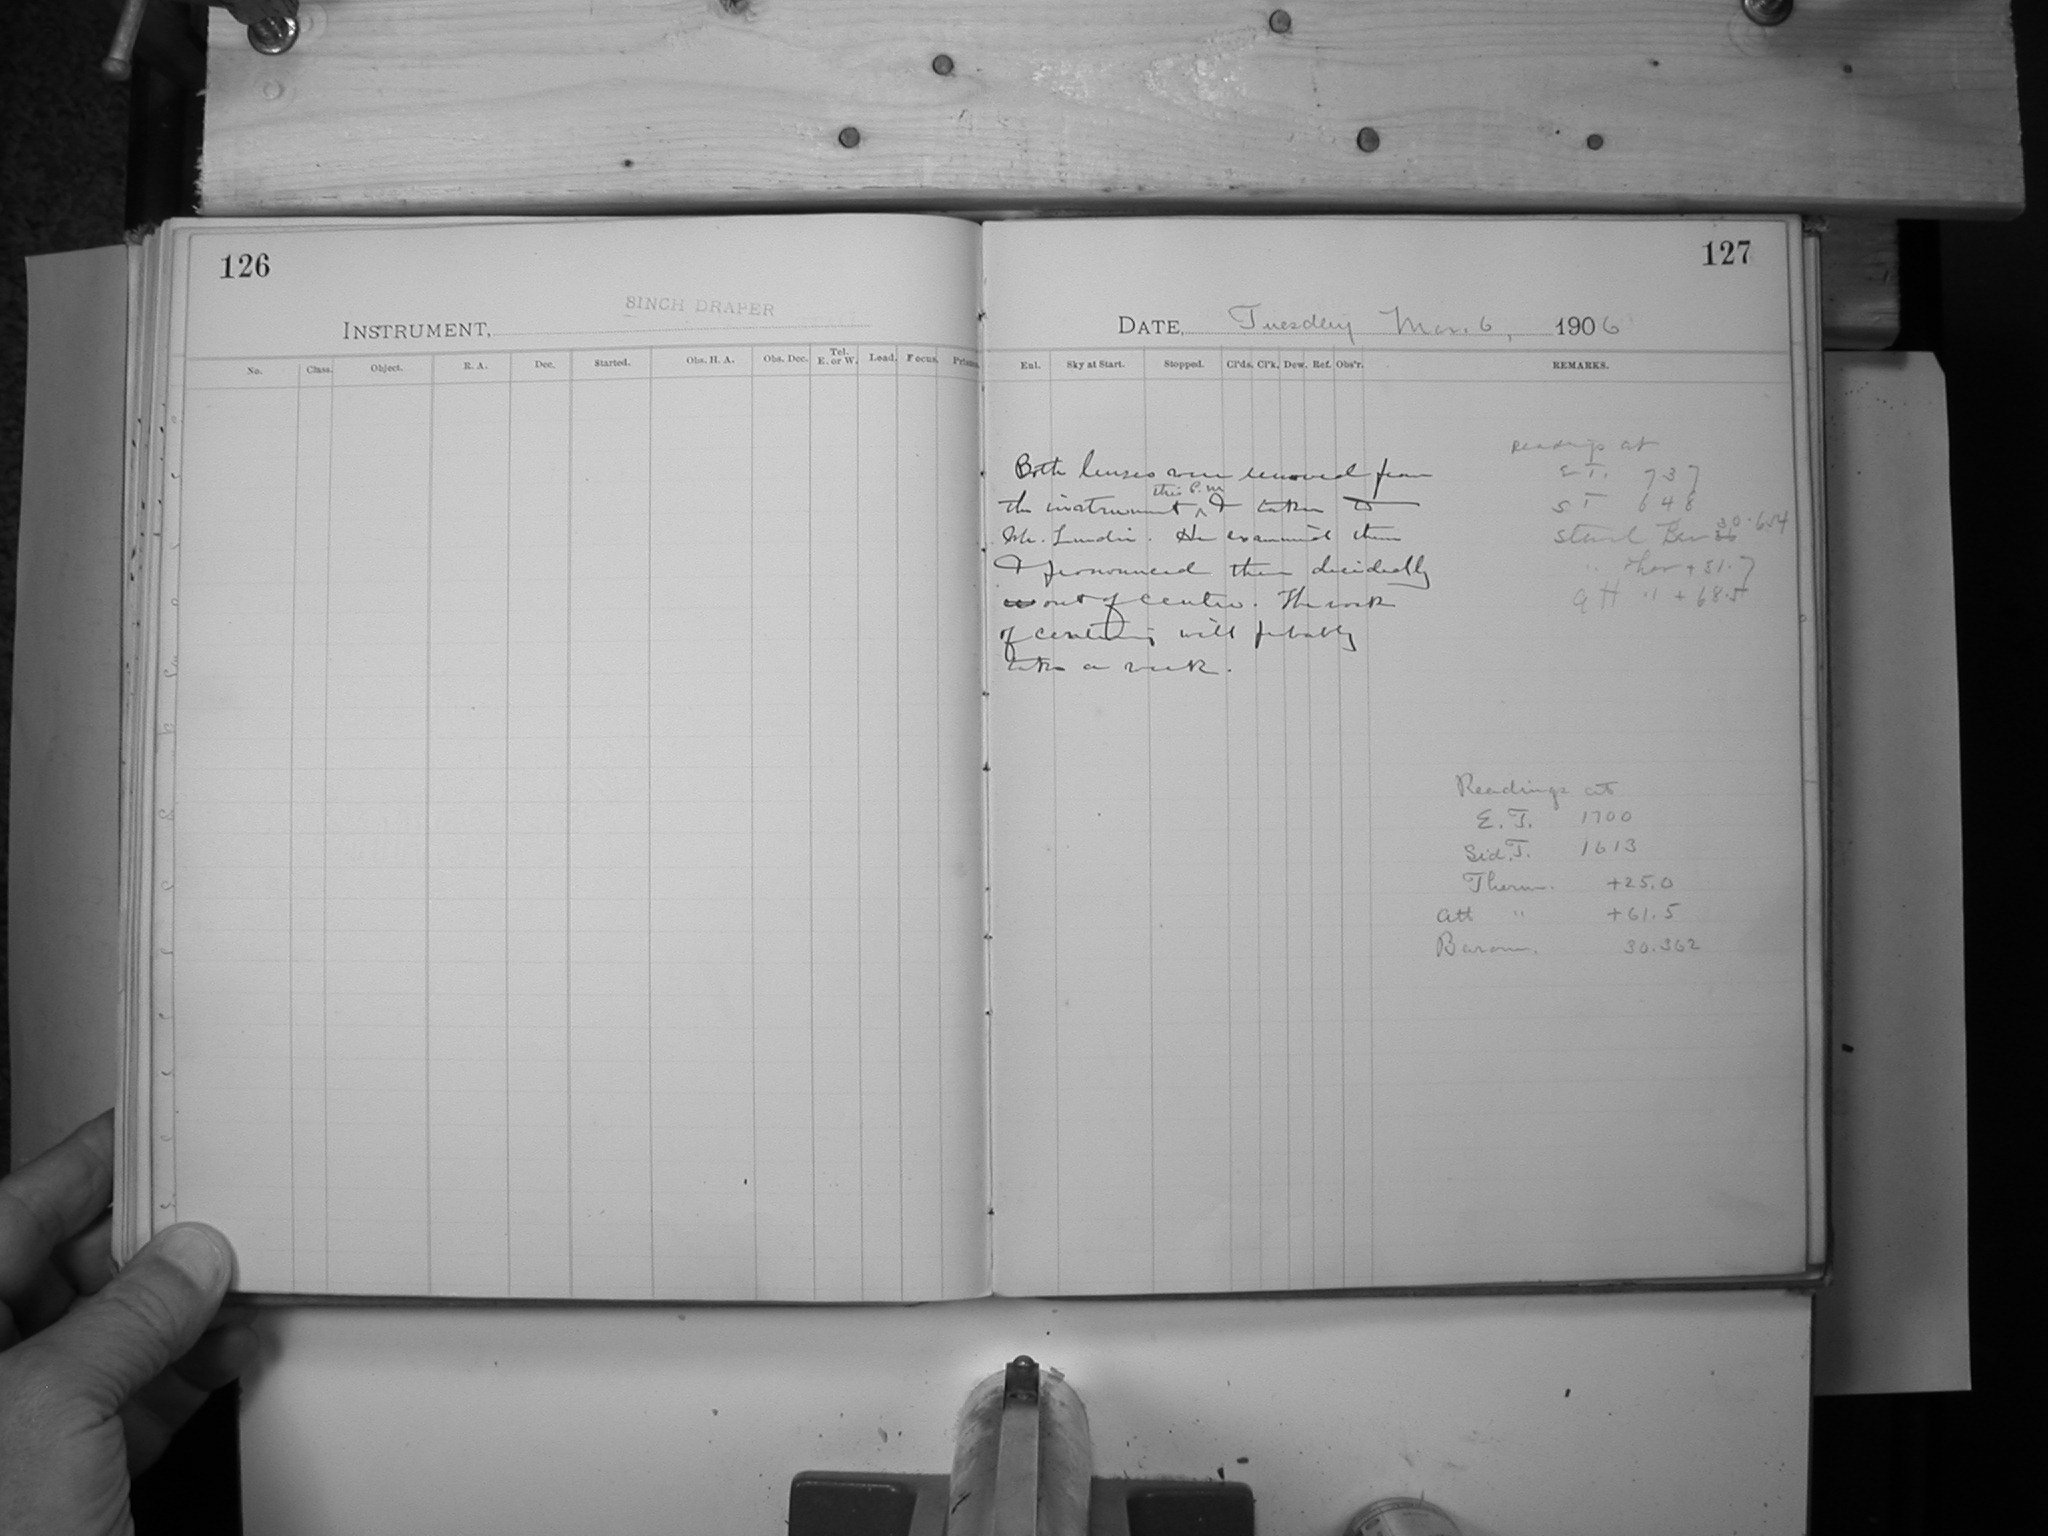 126
8INCH DRAPER
INSTRUMENT,
No. Class. Object. R. A. Dec. Started. Obs. H. A. Obs. Dec. Tel. E. or W. Lead. Focus. Prisms.
127
DATE, Tuesday Mar. 6, 1906
Enl. Sky at Start. Stopped. Cl'ds. Cl'k. Dew. Ref. Obs'r. REMARKS.
Both lenses were removed from
the instrument ^ this P.M. & taken to
Mr. Lundin. He examined them
& pronounced them decidedly
out of centre. The work
of centering will probably
take a week.
Readings at
E T. 737
S T 648
Stand Bar 30.654
" Ther + 31.7
att " + 68.5
Readings at
E. T. 1700
Sid. T. 1613
Therm. +25.0
att " +61.5
Barom. 30.362